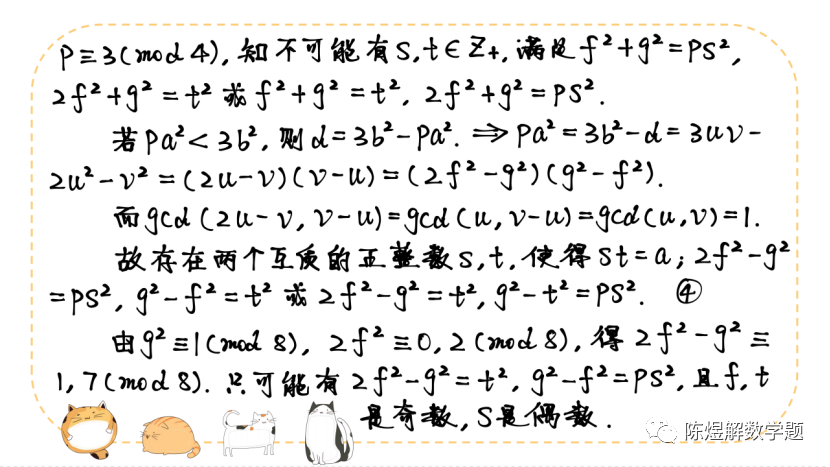 P≡3(mod 4),知不可能有S,t∈Z₊,满足f²+g²=PS²,
2f²+g²=t²或f²+g²=t²,2f²+g²=PS².
若Pa²<3b²,则d=3b²-Pa².⇒Pa²=3b²-d=3uv-
2u²-v²=(2u-v)(v-u)=(2f²-g²)(g²-f²).
而gcd(2u-v,v-u)=gcd(u,v-u)=gcd(u,v)=1.
故存在两个互质的正整数S,t,使得St=a;2f²-g²
=PS²,g²-f²=t²或2f²-g²=t²,g²-t²=PS². ④
由g²≡1(mod 8),2f²≡0,2(mod 8),得2f²-g²≡
1,7(mod 8).只可能有2f²-g²=t²,g²-f²=PS²,且f,t
是奇数,S是偶数.
陈煜解数学题